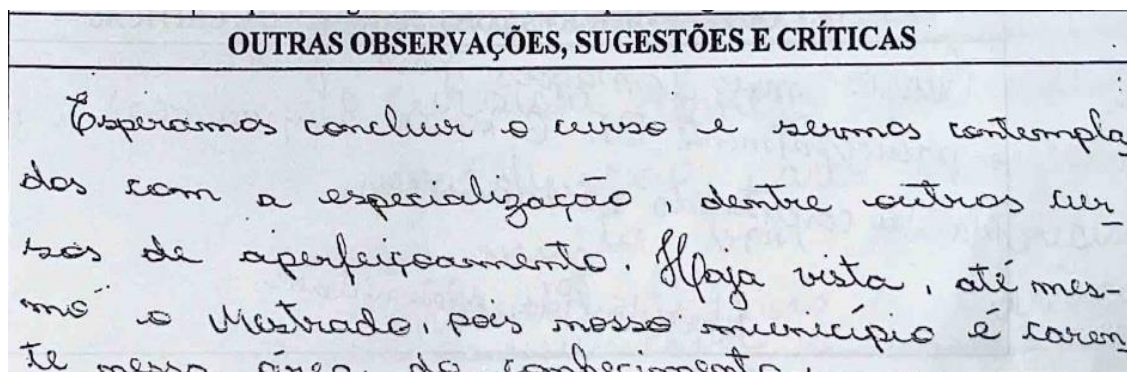 OUTRAS OBSERVAÇÕES, SUGESTÕES E CRÍTICAS
Esperamos concluir o curso e sermos contempla
dos com a especialização, dentre outros cur
sos de aperfeiçoamento. Haja vista, até mes
mo o Mestrado, pois nosso município é caren
te nessa área do conhecimento.